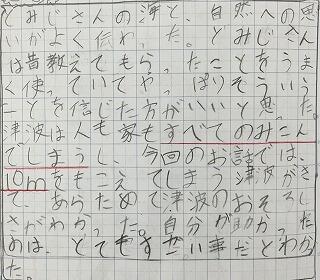 とみじさんの凄と、自然への思
いがよく伝わった。とみじさん
は昔教えてもらったことをうま
く使っていてやっぱりそういう
ことを信じた方がいいと思った。
津波は人も家もすべてのみこん
でしまうし、今回のお話では、
10mをもこえてしまう津波がき
て、あらためて津波のおそろし
さがわかった。自分が助かった
のは、とてもすごい事だとわか
った。